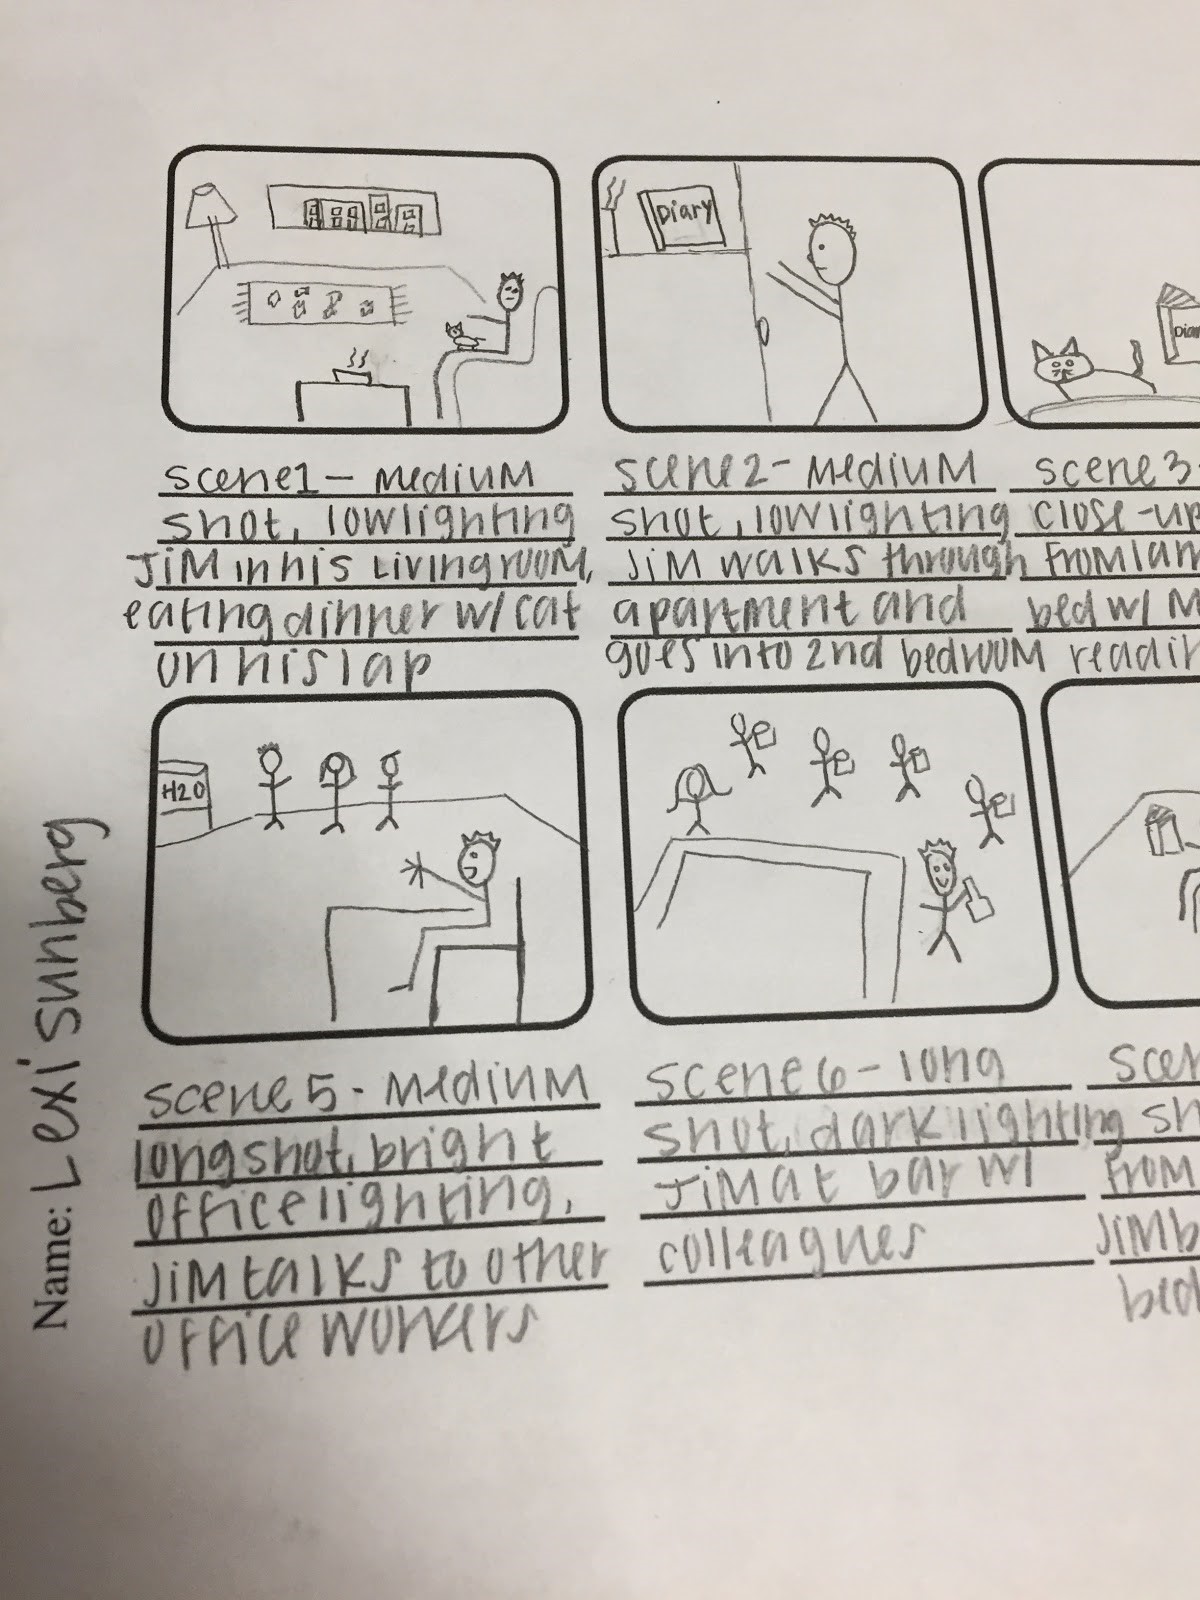 Name: Lexi Sunberg
Diary
scene 1 - medium
shot, low lighting
Jim in his living room,
eating dinner w/ cat
on his lap
scene 2 - medium
shot, low lighting
Jim walks through
apartment and
goes into 2nd bedroom
scene 3
close-up
from
bed w/
H2O
scene 5 - medium
long shot, bright
office lighting,
Jim talks to other
office workers
scene 6 - long
shot, dark lighting
Jim at bar w/
colleagues
from